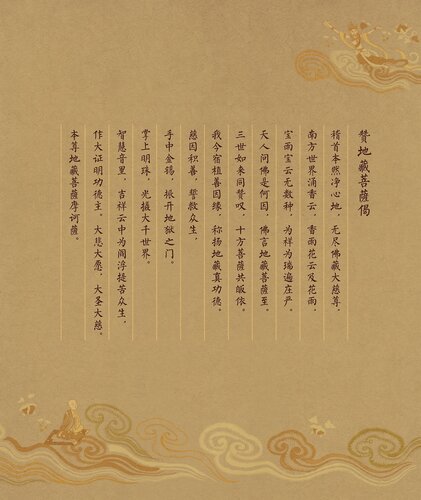 赞地藏菩萨偈
稽首本然净心地，无尽佛藏大慈尊，
南方世界涌香云，香雨花云及花雨，
宝雨宝云无数种，为祥为瑞遍庄严。
天人问佛是何因，佛言地藏菩萨至。
三世如来同赞叹，十方菩萨共皈依。
我今宿植善因缘，称扬地藏真功德。
慈因积善，誓救众生，
手中金锡，振开地狱之门。
掌上明珠，光摄大千世界。
智慧音里，吉祥云中为阎浮提苦众生，
作大证明功德主。大悲大愿，大圣大慈，
本尊地藏菩萨摩诃萨。